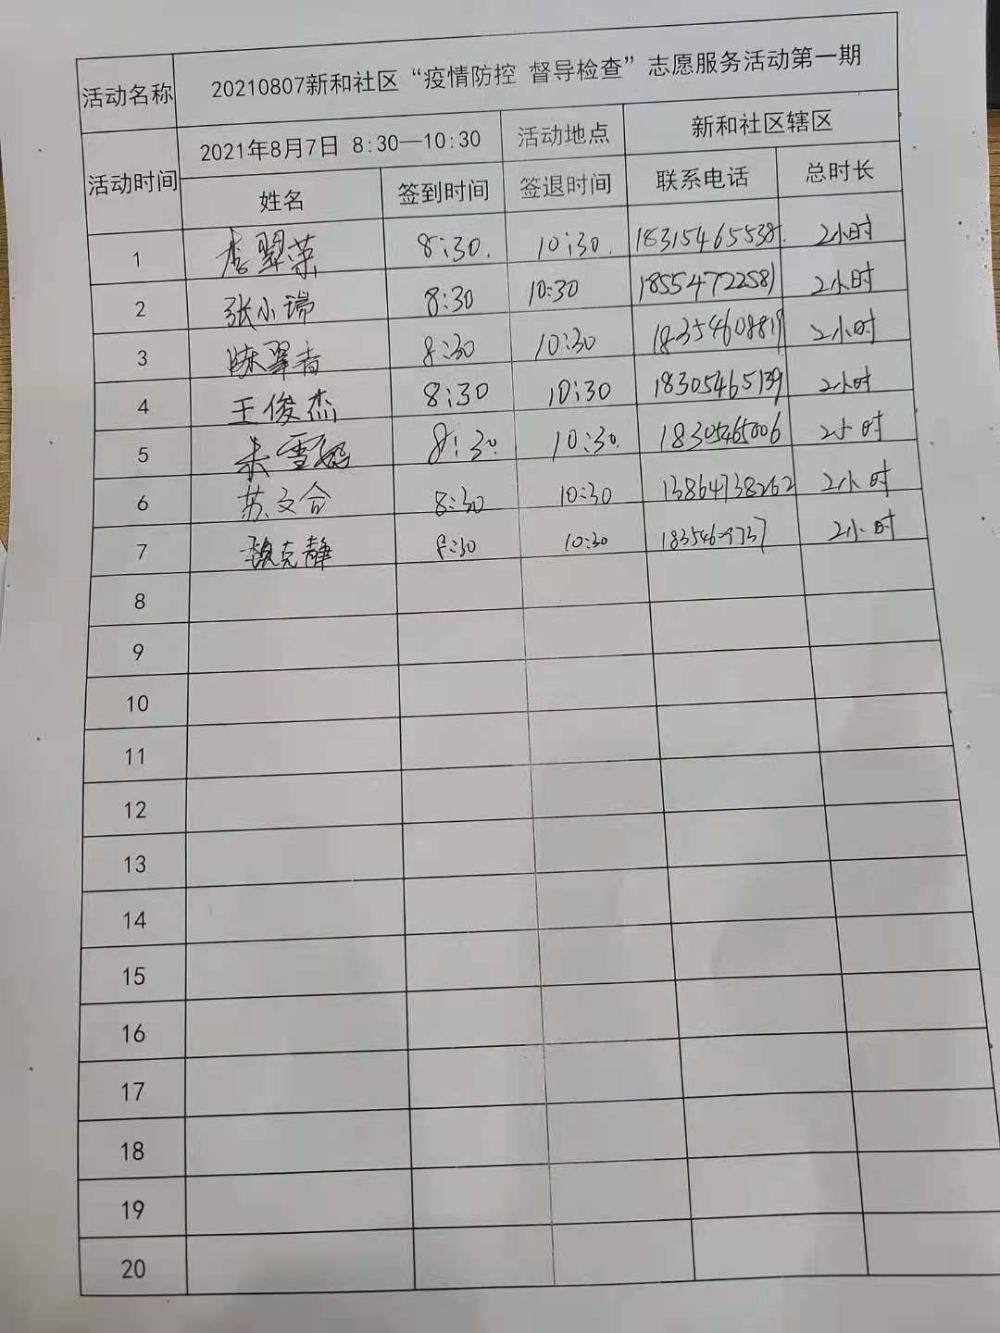 活动名称 20210807新和社区“疫情防控 督导检查”志愿服务活动第一期
活动时间 2021年8月7日 8:30—10:30 活动地点 新和社区辖区
姓名 签到时间 签退时间 联系电话 总时长
1 李翠荣 8:30. 10:30. 18315465538. 2小时
2 张小瑞 8:30 10:30 18554722581 2小时
3 8:30 10:30 18354608819 2小时
4 王俊杰 8:30 10:30 18305465139 2小时
5 8:30. 10:30. 18305465006 2小时
6 苏文合 8:30 10:30 13864738262 2小时
7 魏克静 8:30 10:30 2小时
8
9
10
11
12
13
14
15
16
17
18
19
20